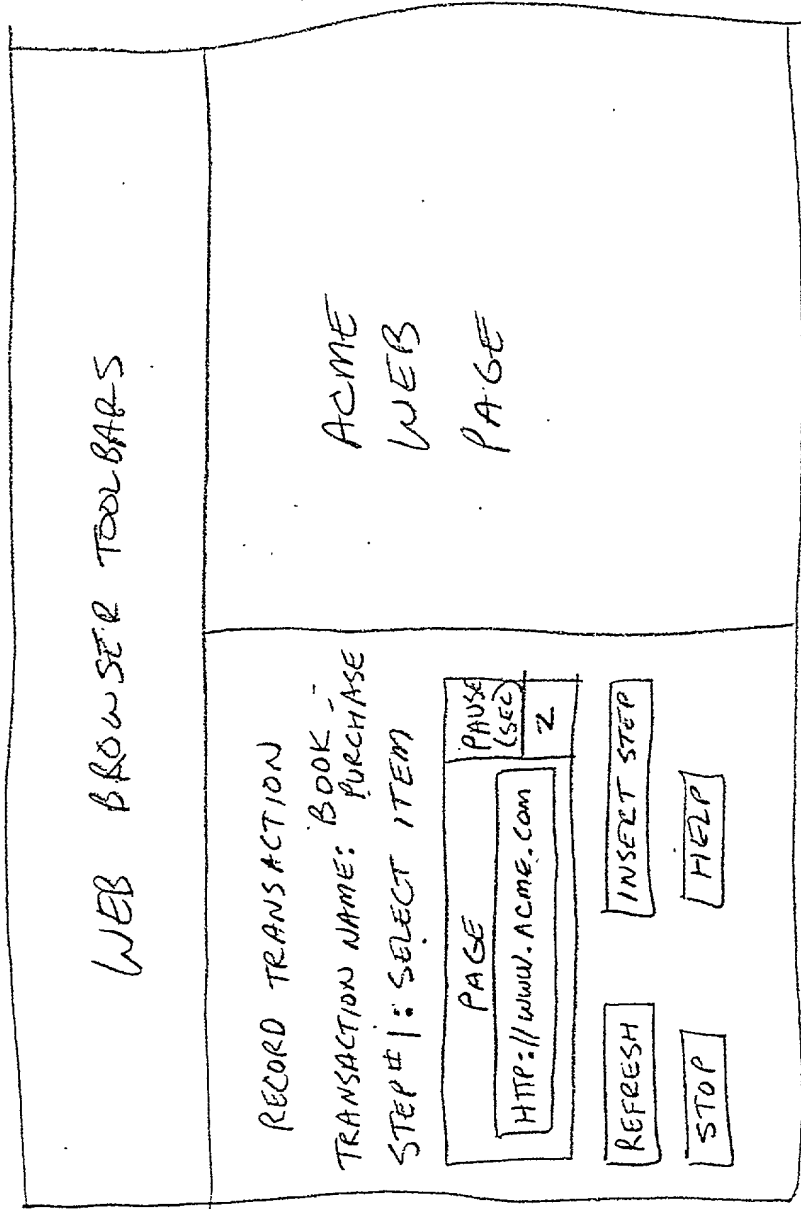 WEB BROWSER TOOLBARS
RECORD TRANSACTION
TRANSACTION NAME: BOOK -
PURCHASE
STEP # 1: SELECT ITEM
PAGE
PAUSE
(SEC)
HTTP://WWW.ACME.COM
2
REFRESH
INSERT STEP
STOP
HELP
ACME
WEB
PAGE